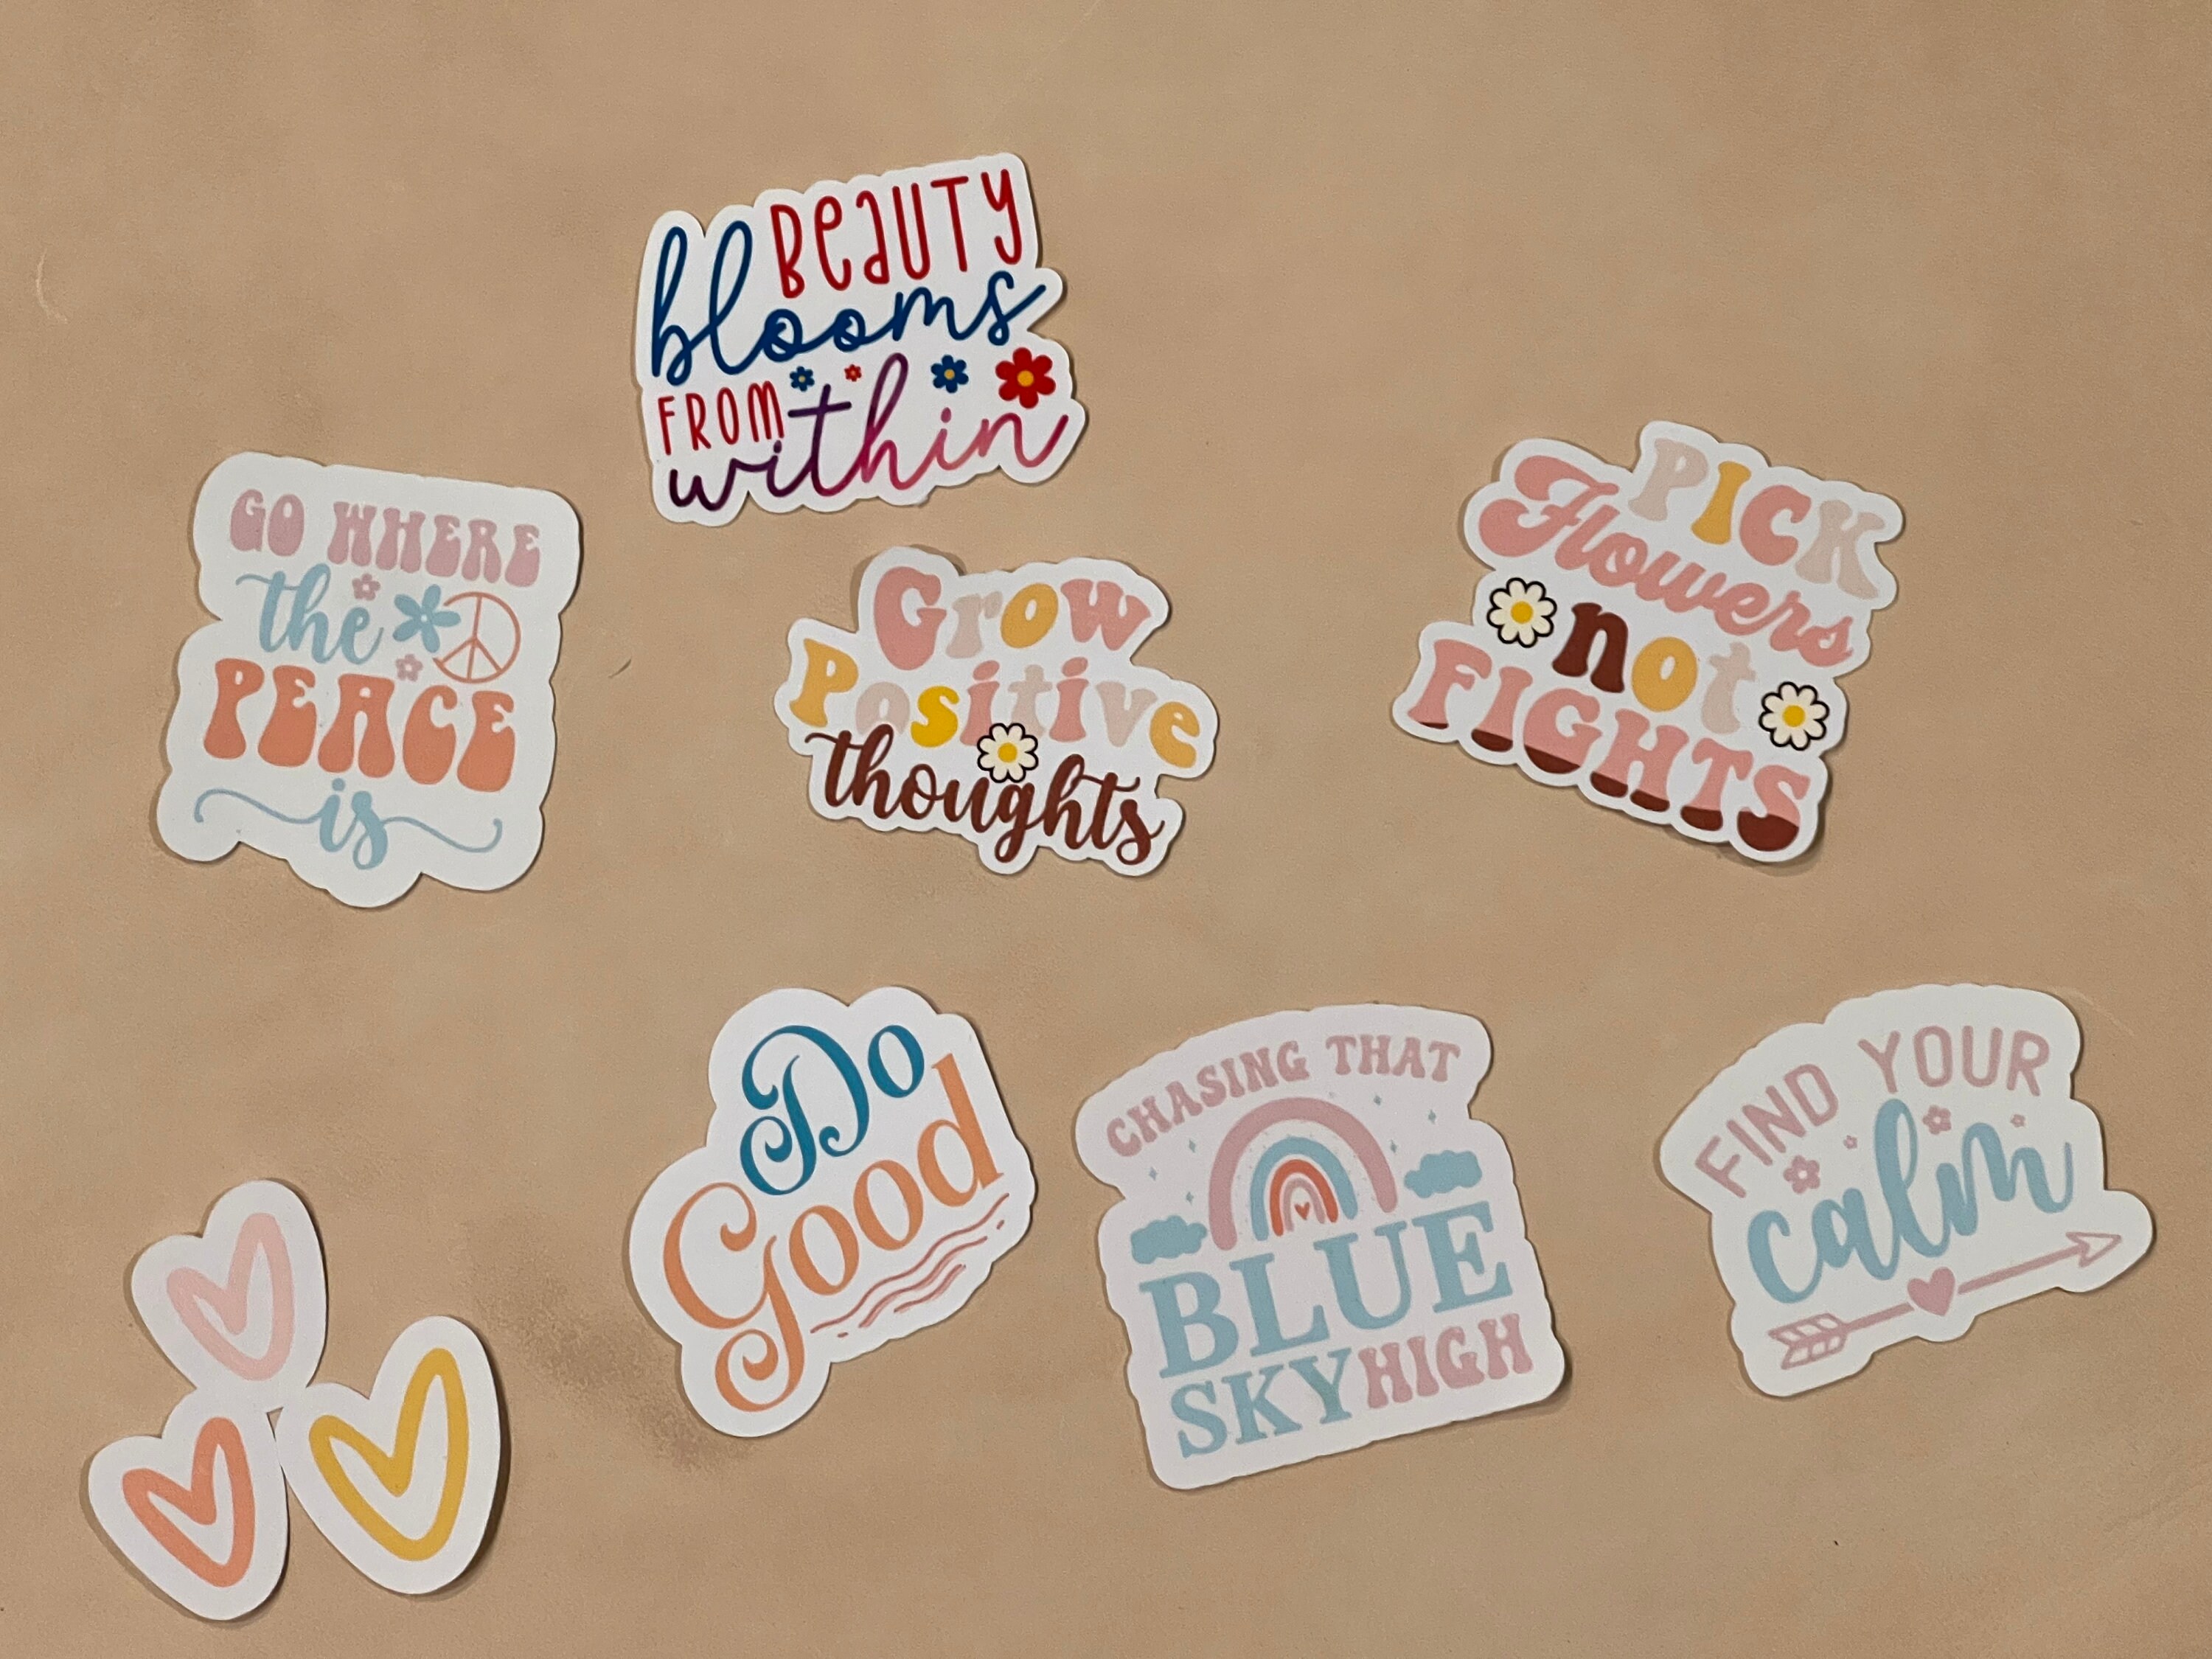 BEAUTY
blooms
FROM within
GO WHERE
the
PEACE
is
Grow
Positive
thoughts
PICK
Flowers
not
FIGHTS
Do
Good
CHASING THAT
BLUE
SKY HIGH
FIND YOUR
calm